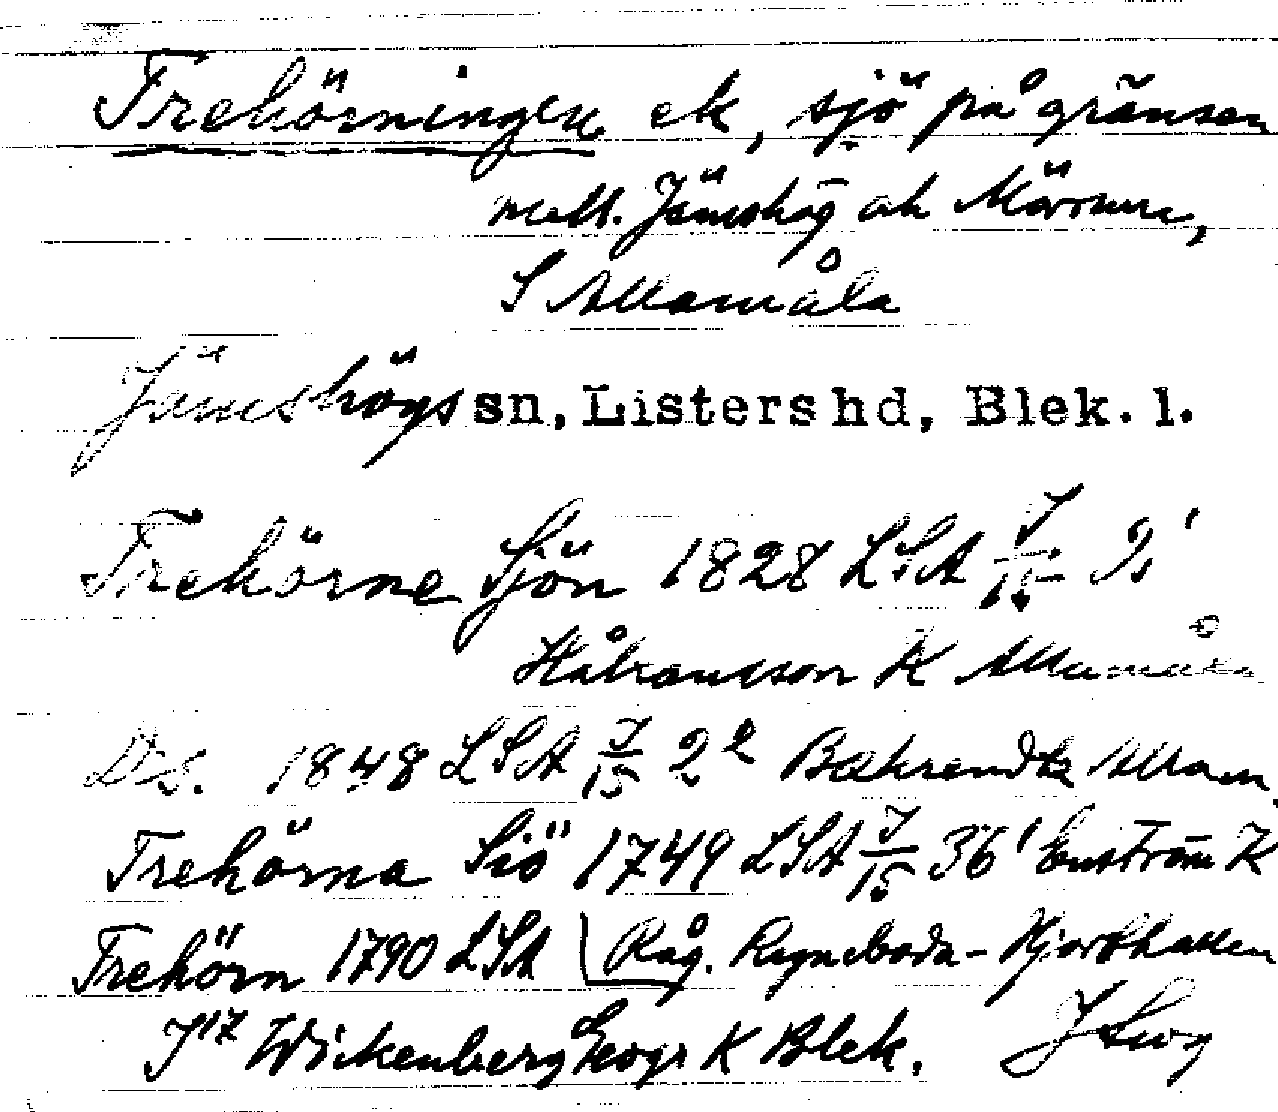 Trehörningen ek, sjö på gränsen
mell. Jämshög och Mörrum,
S Allamåla
Jämshögs sn, Listers hd, Blek. l.
Trehörne Sjön 1828 LSA J/15 2¹
Håkansson K Allamåla
Ds. 1848 LSA J/15 2² Bæhrendtz Allam.
Trehörna Siö 1749 LSA J/15 36¹ Enström K
Trehörn 1790 LSA Råg. Ryneboda - Hjorthallen
J¹⁷ Wickenberg Geogr K Blek.